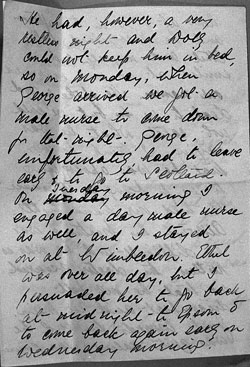 He had, however, a very
restless night and Dolg
could not keep him in bed,
so on Monday, when
George arrived we got a
male nurse to come down
for that night. George,
unfortunately had to leave
early to go to Scotland.
On Tuesday morning I
engaged a day male nurse
as well, and I stayed
on at Wimbledon. Ethel
was over all day, but I
persuaded her to go back
at midnight to Epsom &
to come back again early on
Wednesday morning.